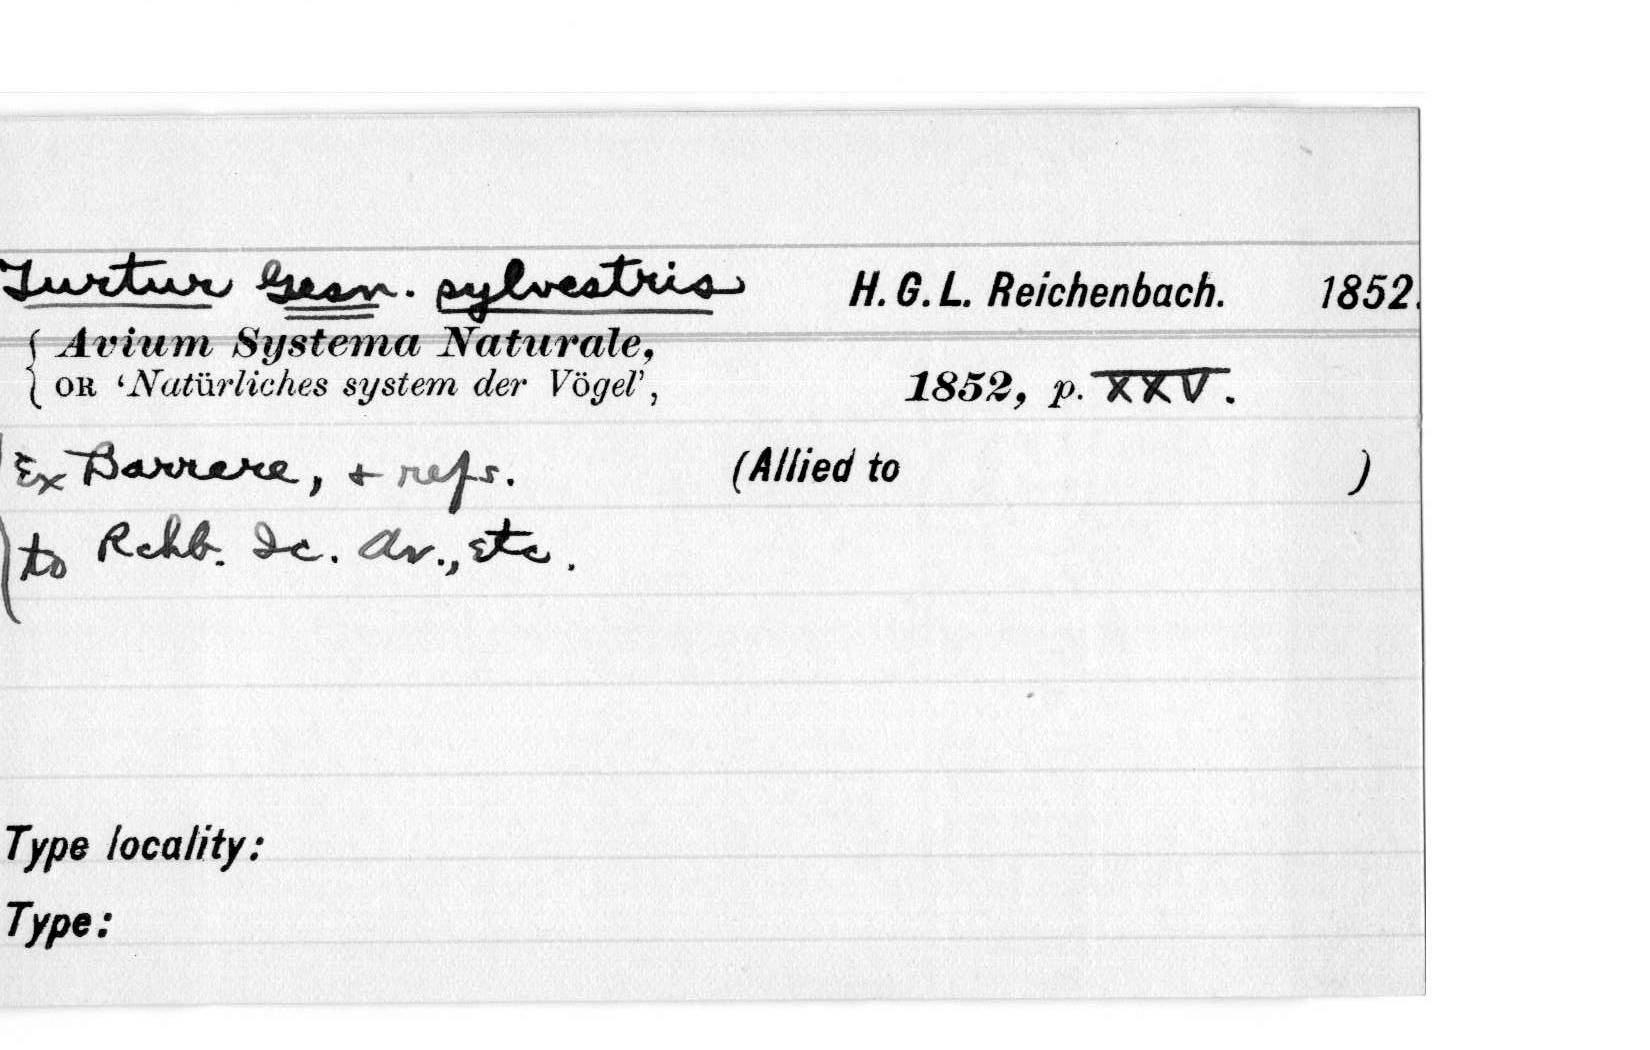 Turtur Gesn. sylvestris H. G. L. Reichenbach. 1852.
{ Avium Systema Naturale,
OR ‘Natürliches system der Vögel’, 1852, p. XXV.
Ex Barrere, + refs. (Allied to )
to Rchb. Ic. Av., etc.
Type locality:
Type: